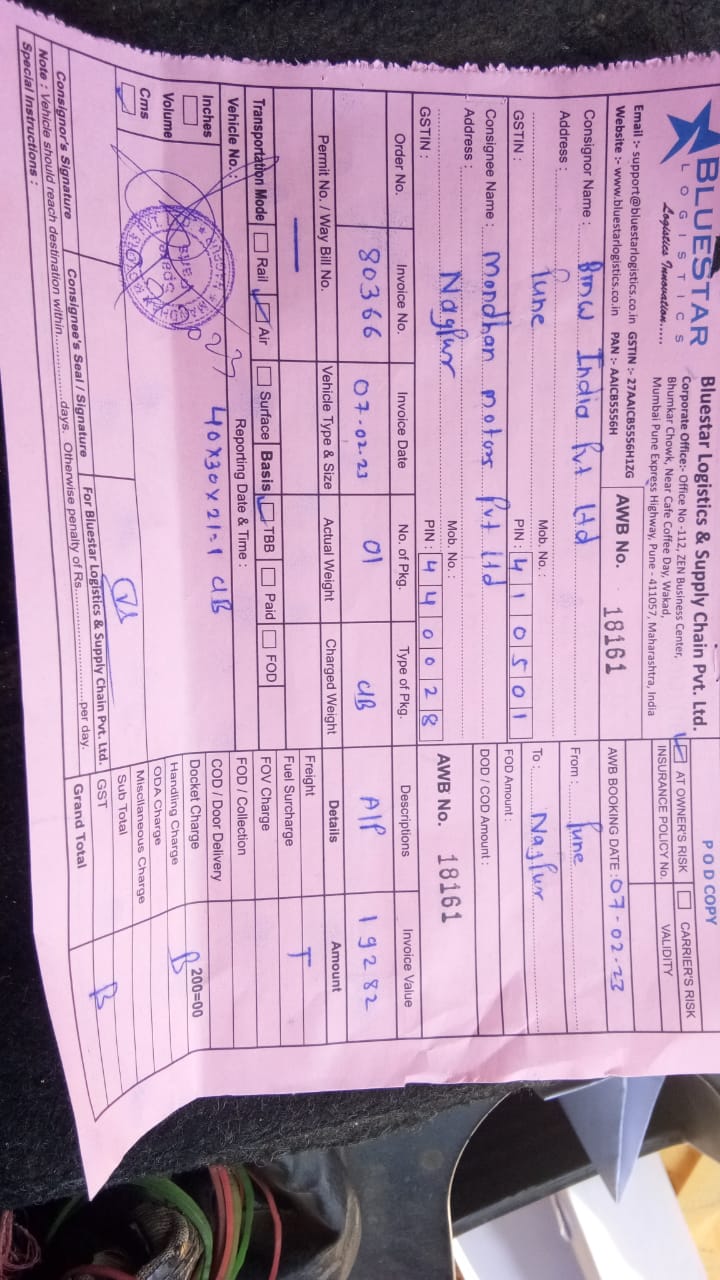 BLUESTAR
LOGISTICS
Logistics Innovation.....
Bluestar Logistics & Supply Chain Pvt. Ltd.
Corporate Office:- Office No -112, ZEN Business Center,
Bhumkar Chowk, Near Cafe Coffee Day, Wakad,
Mumbai Pune Express Highway, Pune - 411057, Maharashtra, India
POD COPY
AT OWNER'S RISK CARRIER'S RISK
INSURANCE POLICY No. VALIDITY
Email :- support@bluestarlogistics.co.in GSTIN :- 27AAICB5556H1ZG
Website :- www.bluestarlogistics.co.in PAN :- AAICB5556H
AWB No. 18161
AWB BOOKING DATE : 07-02-23
Consignor Name : Bmw India Pvt Ltd
Address : Pune
Mob. No. :
GSTIN : PIN : 410501
From : Pune
To : Nagpur
Consignee Name : Mondhan motors Pvt Ltd
Address : Nagpur
Mob. No. :
GSTIN : PIN : 440028
FOD Amount :
DOD / COD Amount :
AWB No. 18161
Order No. Invoice No. Invoice Date No. of Pkg. Type of Pkg. Descriptions Invoice Value
80366 07-02-23 01 CB A/P 19282
Permit No. / Way Bill No. Vehicle Type & Size Actual Weight Charged Weight Details Amount
Freight T
Fuel Surcharge
Transportation Mode Rail Air Surface Basis TBB Paid FOD
FOV Charge
Vehicle No. : Reporting Date & Time :
FOD / Collection
Inches 40x30x21-1 CB
COD / Door Delivery
Volume
Docket Charge 200=00
Cms
Handling Charge
ODA Charge
Miscllaneous Charge
Sub Total
Consignor's Signature Consignee's Seal / Signature For Bluestar Logistics & Supply Chain Pvt. Ltd.
GST
Note : Vehicle should reach destination within..............days. Otherwise penalty of Rs..............per day.
Grand Total
Special Instructions :